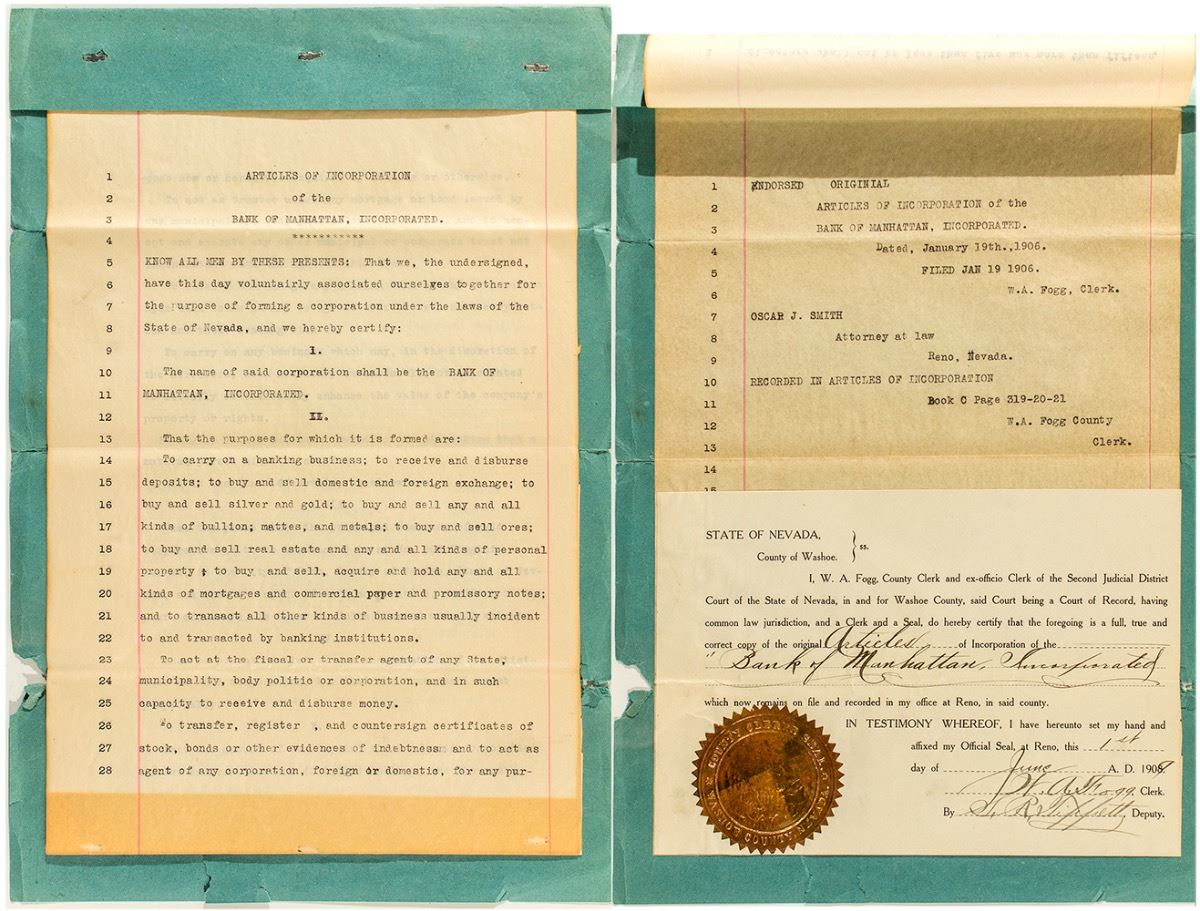 1 ARTICLES OF INCORPORATION
2 of the
3 BANK OF MANHATTAN, INCORPORATED.
4 ***********
5 KNOW ALL MEN BY THESE PRESENTS: That we, the undersigned,
6 have this day voluntairly associated ourselves together for
7 the purpose of forming a corporation under the laws of the
8 State of Nevada, and we hereby certify:
9 I.
10 The name of said corporation shall be the BANK OF
11 MANHATTAN, INCORPORATED.
12 II.
13 That the purposes for which it is formed are:
14 To carry on a banking business; to receive and disburse
15 deposits; to buy and sell domestic and foreign exchange; to
16 buy and sell silver and gold; to buy and sell any and all
17 kinds of bullion; mattes, and metals; to buy and sell ores;
18 to buy and sell real estate and any and all kinds of personal
19 property ; to buy and sell, acquire and hold any and all
20 kinds of mortgages and commercial paper and promissory notes;
21 and to transact all other kinds of business usually incident
22 to and transacted by banking institutions.
23 To act at the fiscal or transfer agent of any State,
24 municipality, body politic or corporation, and in such
25 capacity to receive and disburse money.
26 To transfer, register , and countersign certificates of
27 stock, bonds or other evidences of indebtness and to act as
28 agent of any corporation, foreign or domestic, for any pur-
1 ENDORSED ORIGINIAL
2 ARTICLES OF INCORPORATION of the
3 BANK OF MANHATTAN, INCORPORATED.
4 Dated, January 19th.,1906.
5 FILED JAN 19 1906.
6 W.A. Fogg, Clerk.
7 OSCAR J. SMITH
8 Attorney at law
9 Reno, Nevada.
10 RECORDED IN ARTICLES OF INCORPORATION
11 Book C Page 319-20-21
12 W.A. Fogg County
13 Clerk.
14
15
STATE OF NEVADA,
County of Washoe. } ss.
I, W. A. Fogg, County Clerk and ex-officio Clerk of the Second Judicial District
Court of the State of Nevada, in and for Washoe County, said Court being a Court of Record, having
common law jurisdiction, and a Clerk and a Seal, do hereby certify that the foregoing is a full, true and
correct copy of the original Articles of Incorporation of the
"Bank of Manhattan, Incorporated
which now remains on file and recorded in my office at Reno, in said county.
IN TESTIMONY WHEREOF, I have hereunto set my hand and
affixed my Official Seal, at Reno, this 1st
day of June A. D. 190
W. A. Fogg. Clerk.
By Deputy.